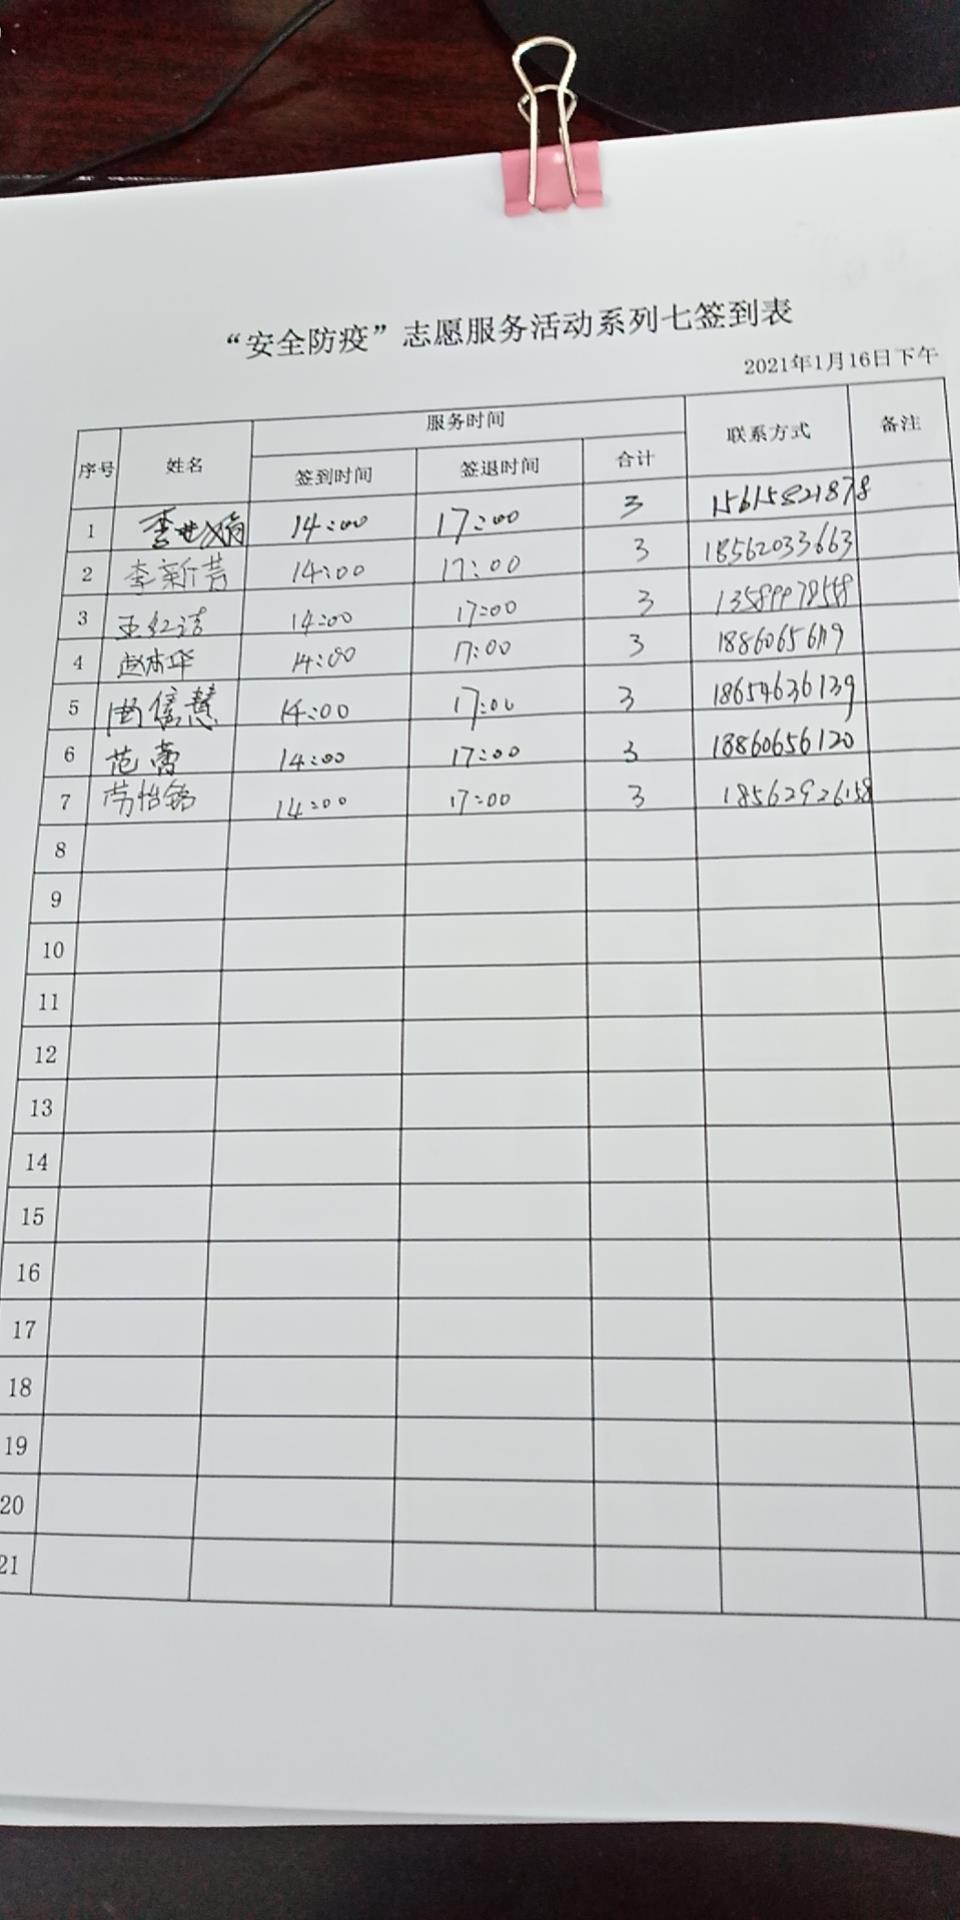 “安全防疫”志愿服务活动系列七签到表
2021年1月16日下午
序号 姓名 服务时间 联系方式 备注
签到时间 签退时间 合计
1 14:00 17:00 3 15615821878
2 李新芳 14:00 17:00 3 18562033663
3 王红洁 14:00 17:00 3
4 赵本华 14:00 17:00 3
5 曲信慧 14:00 17:00 3 18654636139
6 范蕾 14:00 17:00 3 18860656120
7 劳怡铭 14:00 17:00 3 18562926158
8
9
10
11
12
13
14
15
16
17
18
19
20
21